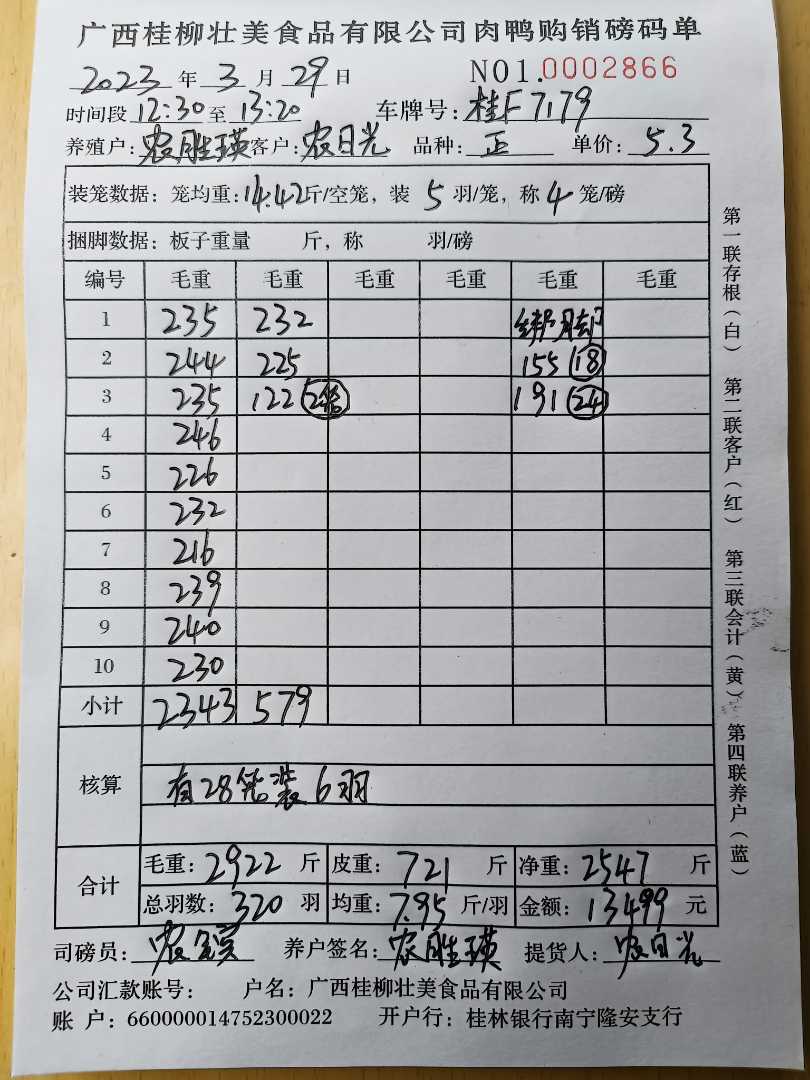 广西桂柳壮美食品有限公司肉鸭购销磅码单
2023 年 3 月 29 日 NO1.0002866
时间段 12:30 至 13:20 车牌号: 桂F7179
养殖户: 农胜瑛 客户: 农日光 品种: 正 单价: 5.3
装笼数据: 笼均重: 14.42 斤/空笼, 装 5 羽/笼, 称 4 笼/磅
捆脚数据: 板子重量 斤, 称 羽/磅
编号 毛重 毛重 毛重 毛重 毛重 毛重
1 235 232 绑脚
2 244 225 155 18
3 235 122 2笼 191 24
4 246
5 226
6 232
7 216
8 239
9 240
10 230
小计 2343 579
核算 有28笼装6羽
合计
毛重: 2922 斤 皮重: 721 斤 净重: 2547 斤
总羽数: 320 羽 均重: 7.95 斤/羽 金额: 13499 元
司磅员: 农 养户签名: 农胜瑛 提货人: 农日光
公司汇款账号: 户名: 广西桂柳壮美食品有限公司
账 户: 660000014752300022 开户行: 桂林银行南宁隆安支行
第一联存根(白) 第二联客户(红) 第三联会计(黄) 第四联养户(蓝)